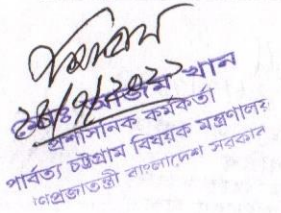 ২৪/৭/২০২২
মোঃ আজম খান
প্রশাসনিক কর্মকর্তা
পার্বত্য চট্টগ্রাম বিষয়ক মন্ত্রণালয়
গণপ্রজাতন্ত্রী বাংলাদেশ সরকার